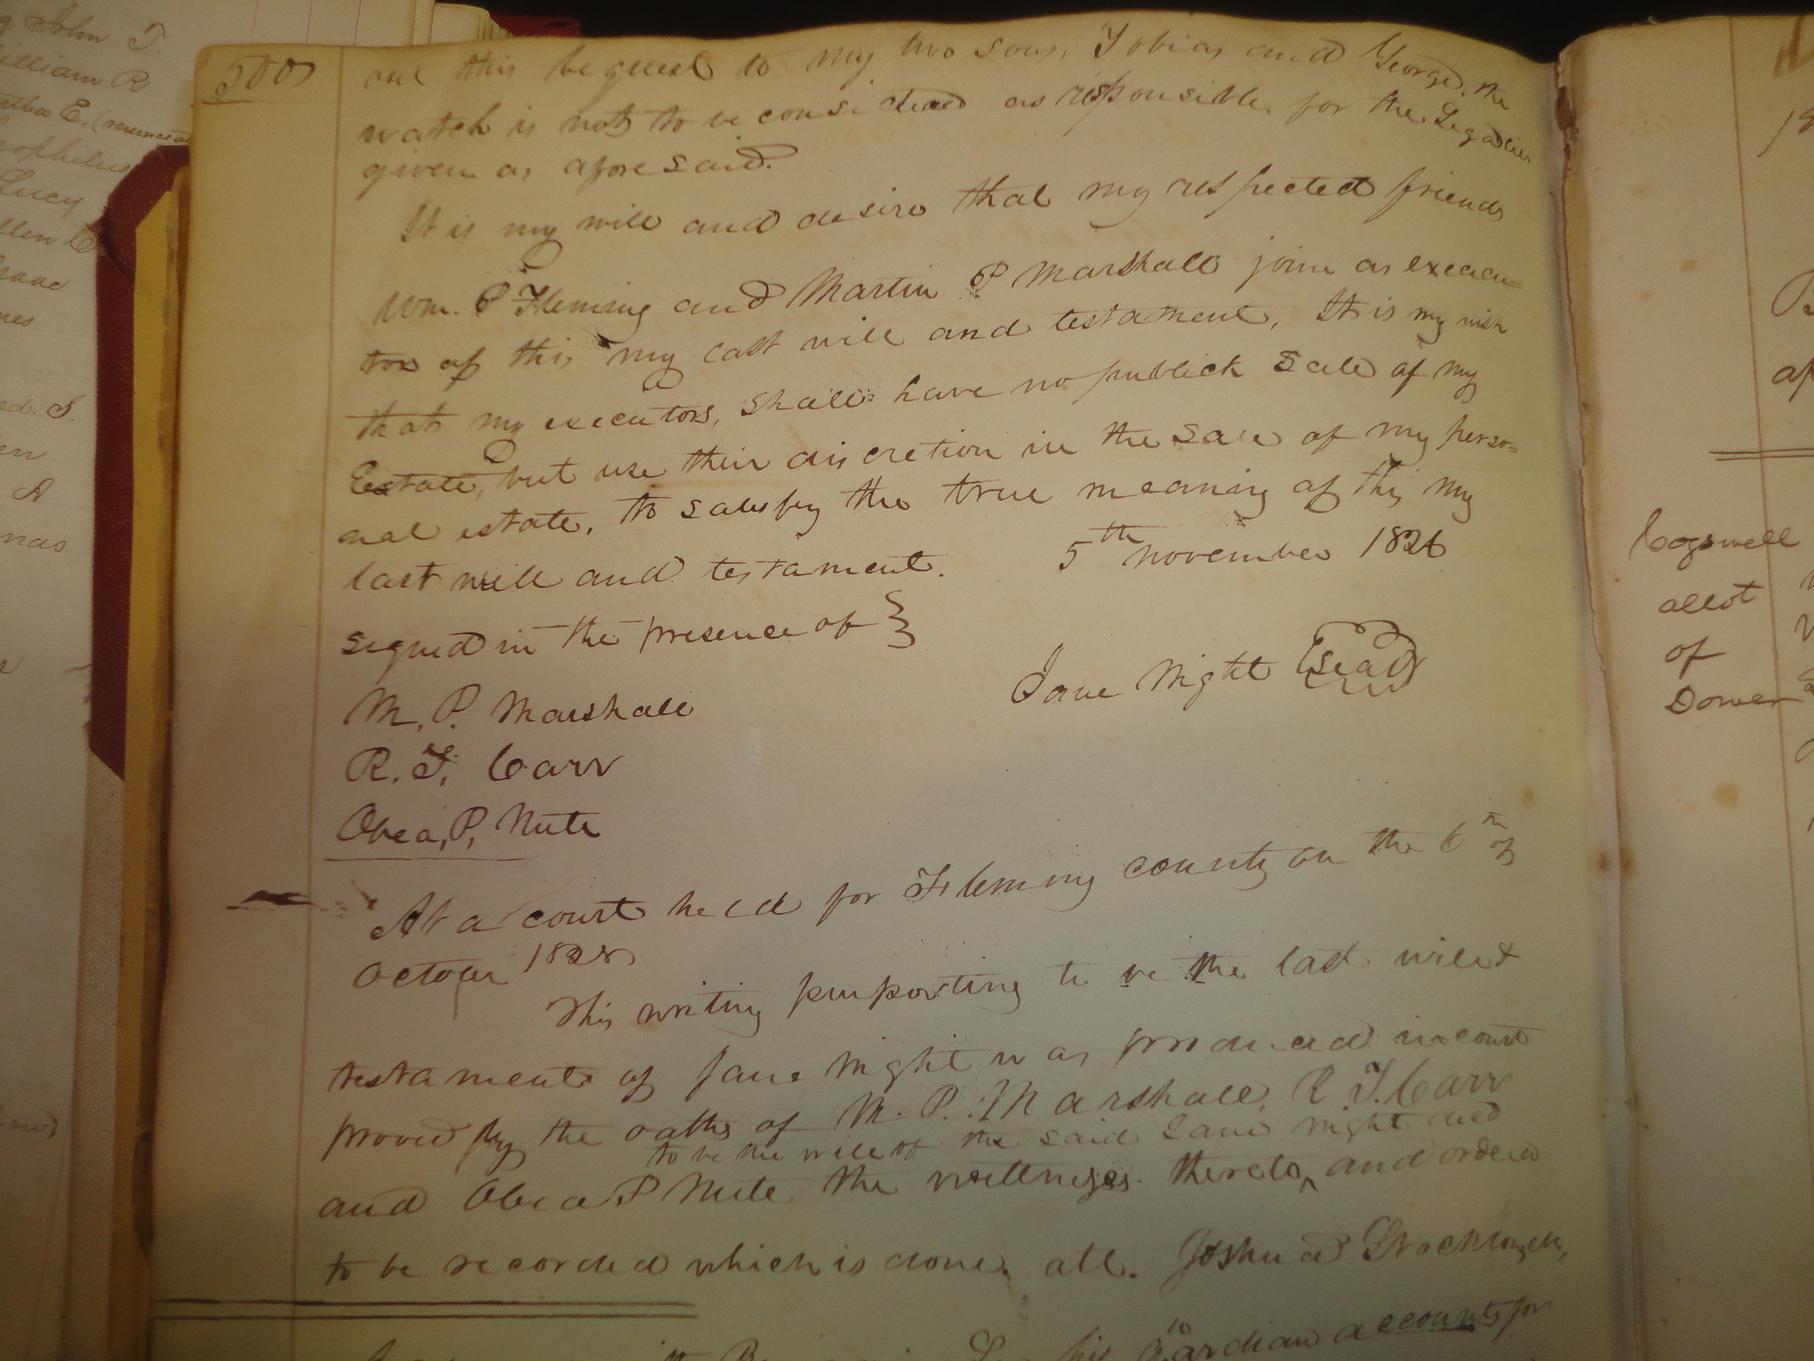 g John T.
William R
Martha E. (renunciat
Theophilus
Lucy
Isaac
nes
ed. S.
en
A
nas
500
and this bequest to my two sons, Tobias and George, the
watch is not to be considered as responsible for the Legacies
given as aforesaid.
It is my will and desire that my respected friends
Wm. P Fleming and Martin P Marshall join as execu=
tors of this my last will and testament. It is my wish
that my executors, shall have no publick Sale of my
Eestate, but use their discretion in the Sale of my perso=
nal estate, to satisfy the true meaning of this my
last will and testament. 5th november 1826
signed in the presence of }
Jane Night (seal)
M. P. Marshall
R. T. Carr
Obea, P, Nute
At a court held for Fleming county on the 6th of
October 1828
This writing purporting to be the last will &
testament of Jane Night was produced in court
proved by the oaths of M. P. Marshall, R T. Carr
to be the will of the said Jane Night decd
and Obea P Nute the wittnesses thereto ^ and ordered
to be recorded which is done. att. Joshua Stockton
his Gardian accounts for
Cogswell
allot
of
Dower